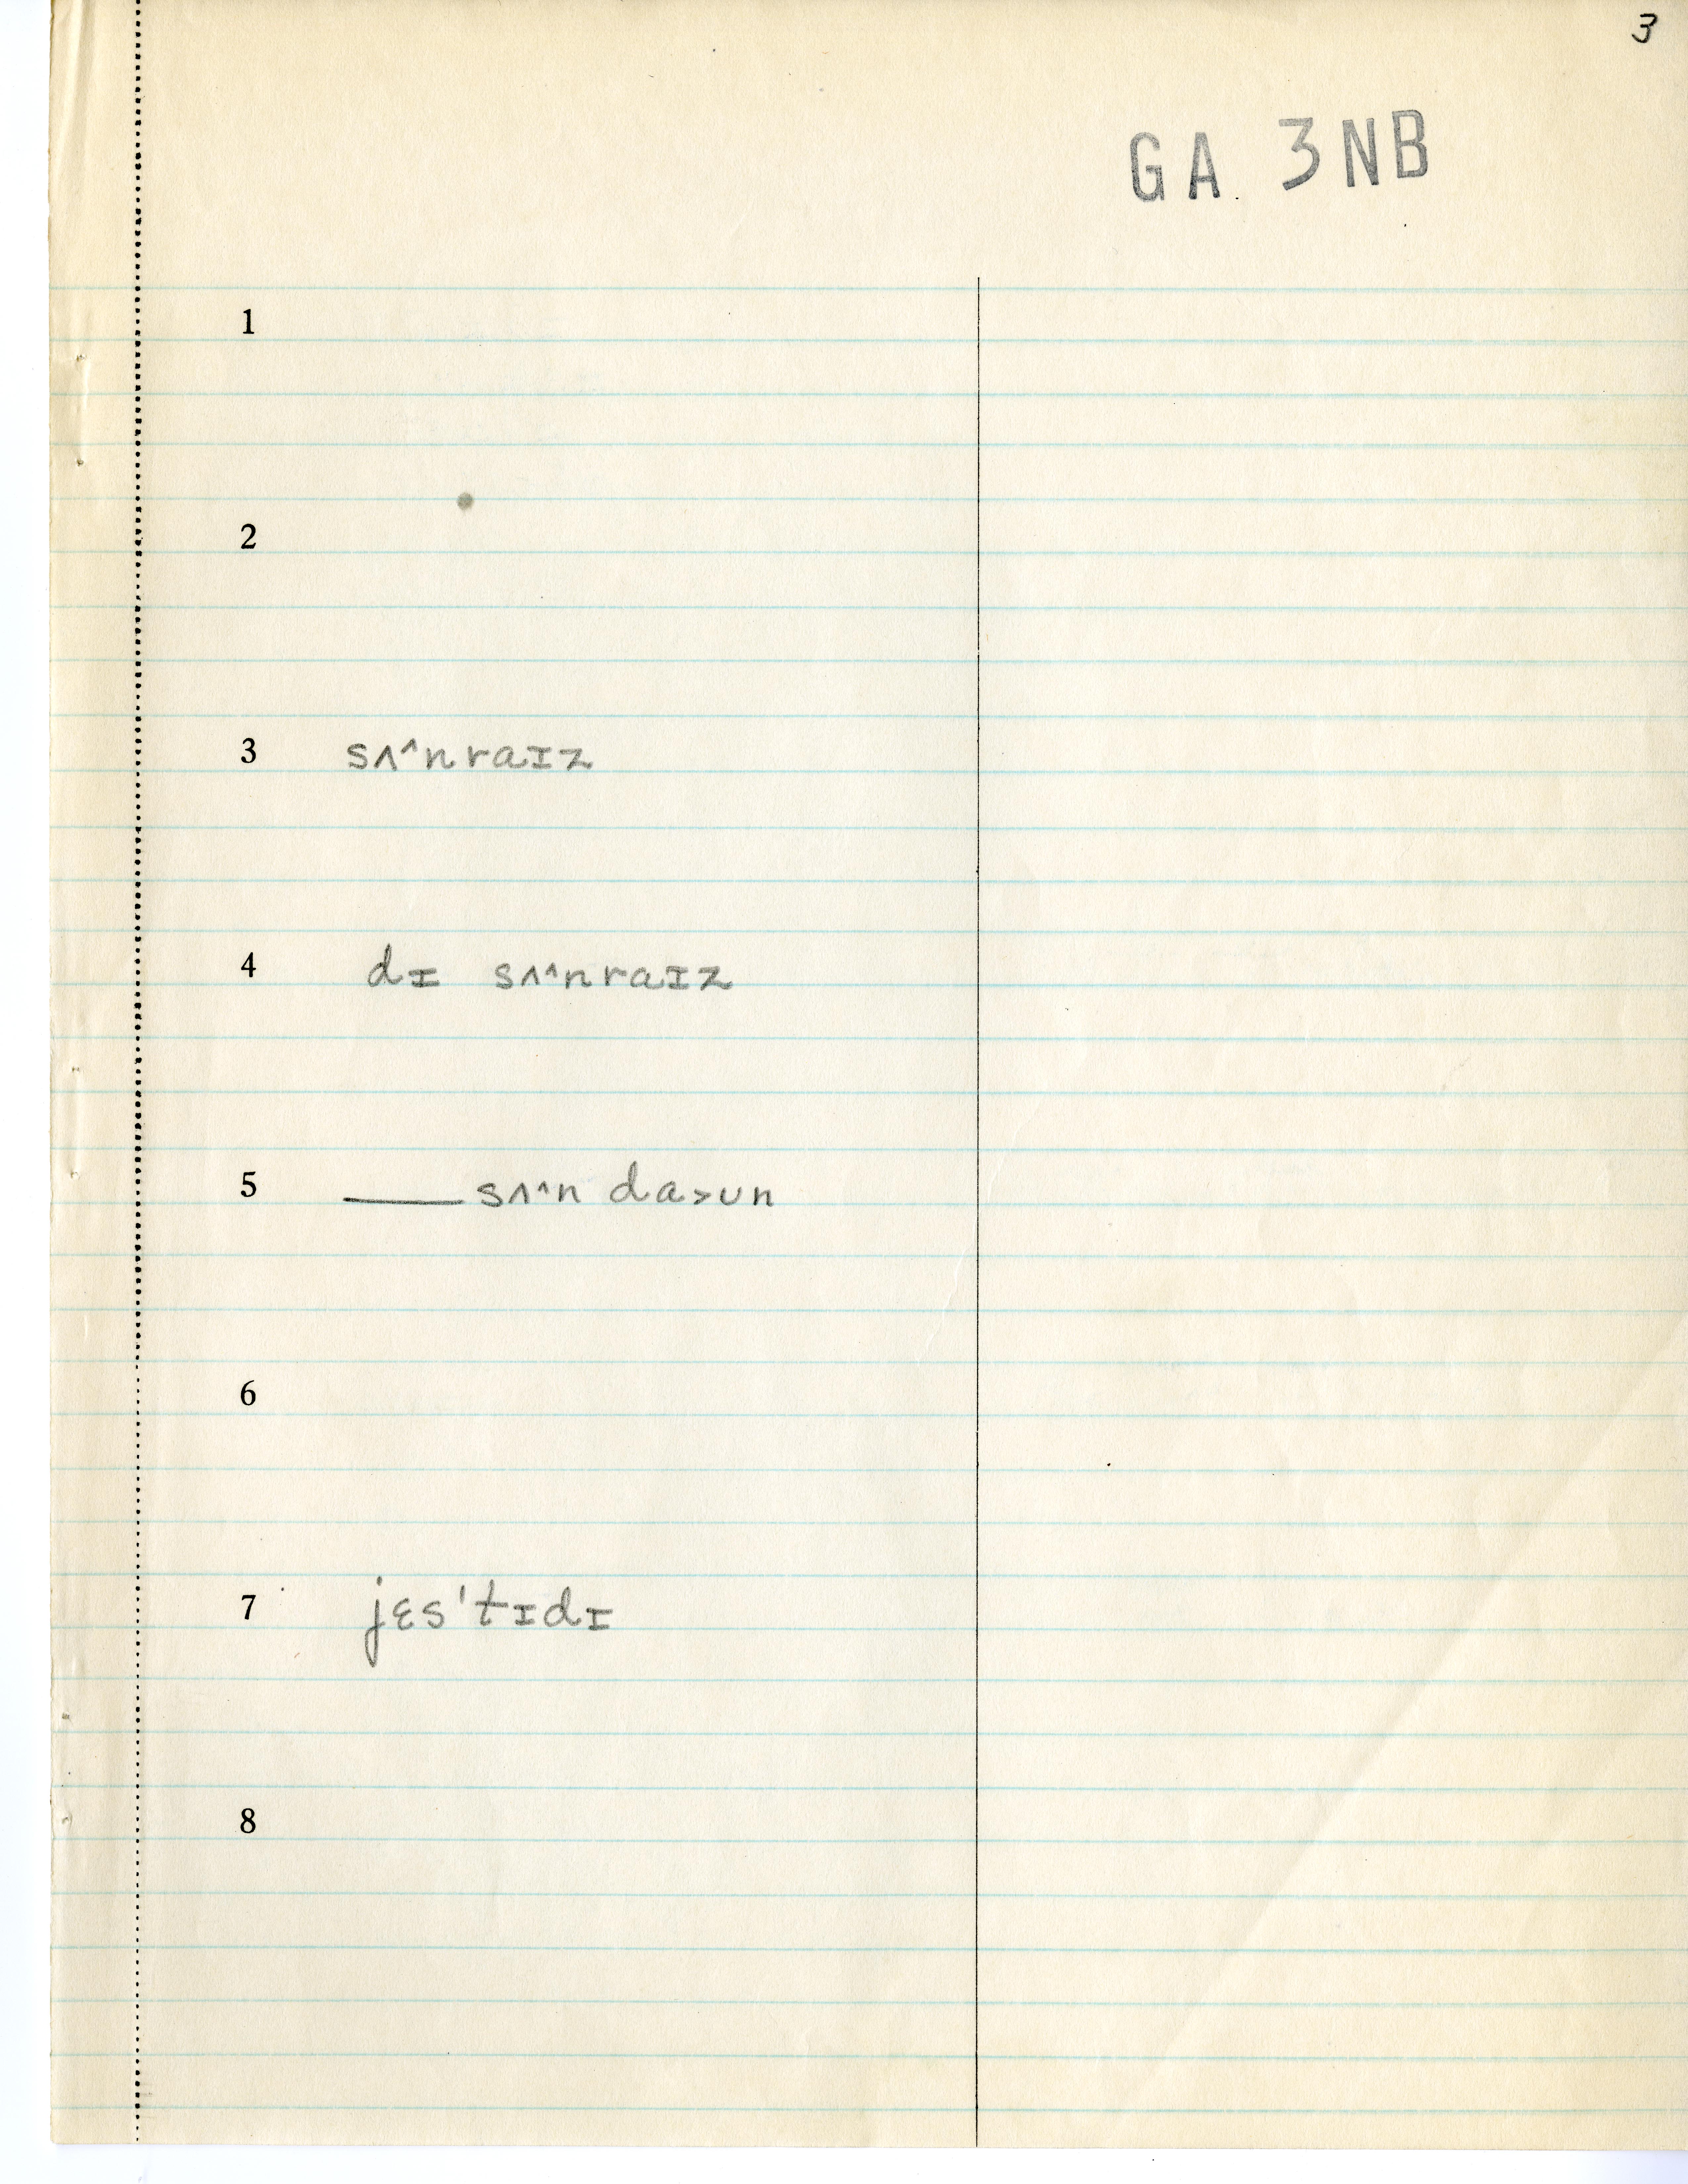 3
GA. 3NB
1
2
3 sʌ^nraɪz
4 dɪ sʌ^^nraɪz
5 ___ sʌ^^n da>ʊn
6
7 jɛs'tɪdɪ
8